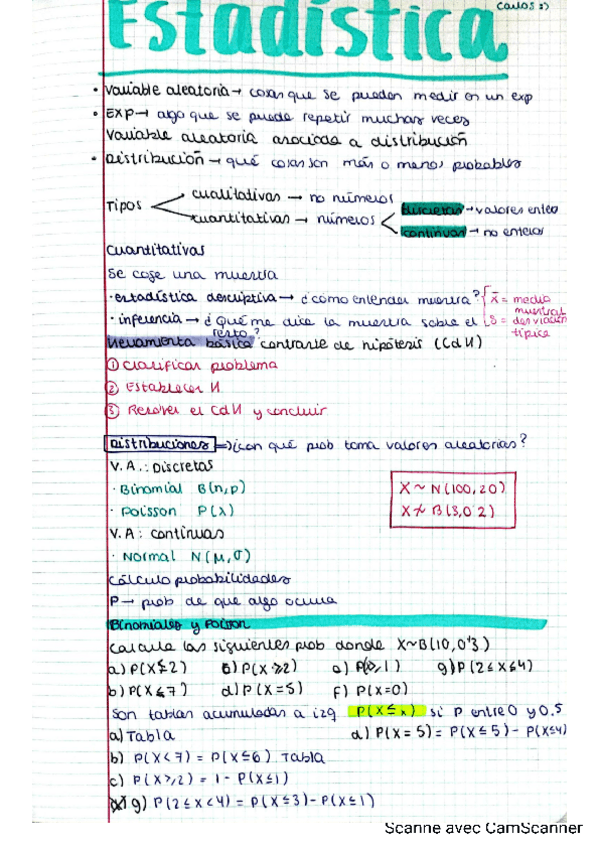 Carlos :)
Estadística
· Variable aleatoria → cosas que se pueden medir en un exp
· EXP → algo que se puede repetir muchas veces
Variable aleatoria asociada a distribución
· Distribución → qué cosas son más o menos probables
Tipos
cualitativas → no números
cuantitativas → números
discretas → valores enteo
continuas → no enteros
Cuantitativas
Se coge una muestra
· estadística descriptiva → ¿cómo entender muestra?
x̄ = media muestral
S = desviación típica
· inferencia → ¿Qué me dice la muestra sobre el resto?
Herramienta básica contraste de hipótesis (CdH)
① Clarificar problema
② Establecer H
③ Resolver el CdH y concluir
Distribuciones ⇒ ¿con qué prob toma valores aleatorias?
V.A.: Discretas
· Binomial B(n,p)
· Poisson P(λ)
V.A: continuas
· Normal N(μ,σ)
X ~ N(100,20)
X ≁ B(3,0'2)
Cálculo probabilidades
P → prob de que algo ocurra
Binomiales y Poisson
Calcula las siguientes prob donde X~B(10,0'3)
a) P(X≤2) P(X≥2) g) P(2≤X≤4)
b) P(X<7) d) P(X=5) f) P(X=0)
Son tablas acumuladas a izq P(X≤x) si p entre 0 y 0.5
a) Tabla d) P(X=5) = P(X≤5) - P(X≤4)
b) P(X<7) = P(X≤6) Tabla
c) P(X≥2) = 1 - P(X≤1)
g) P(2≤X<4) = P(X≤3) - P(X≤1)
Scanné avec CamScanner